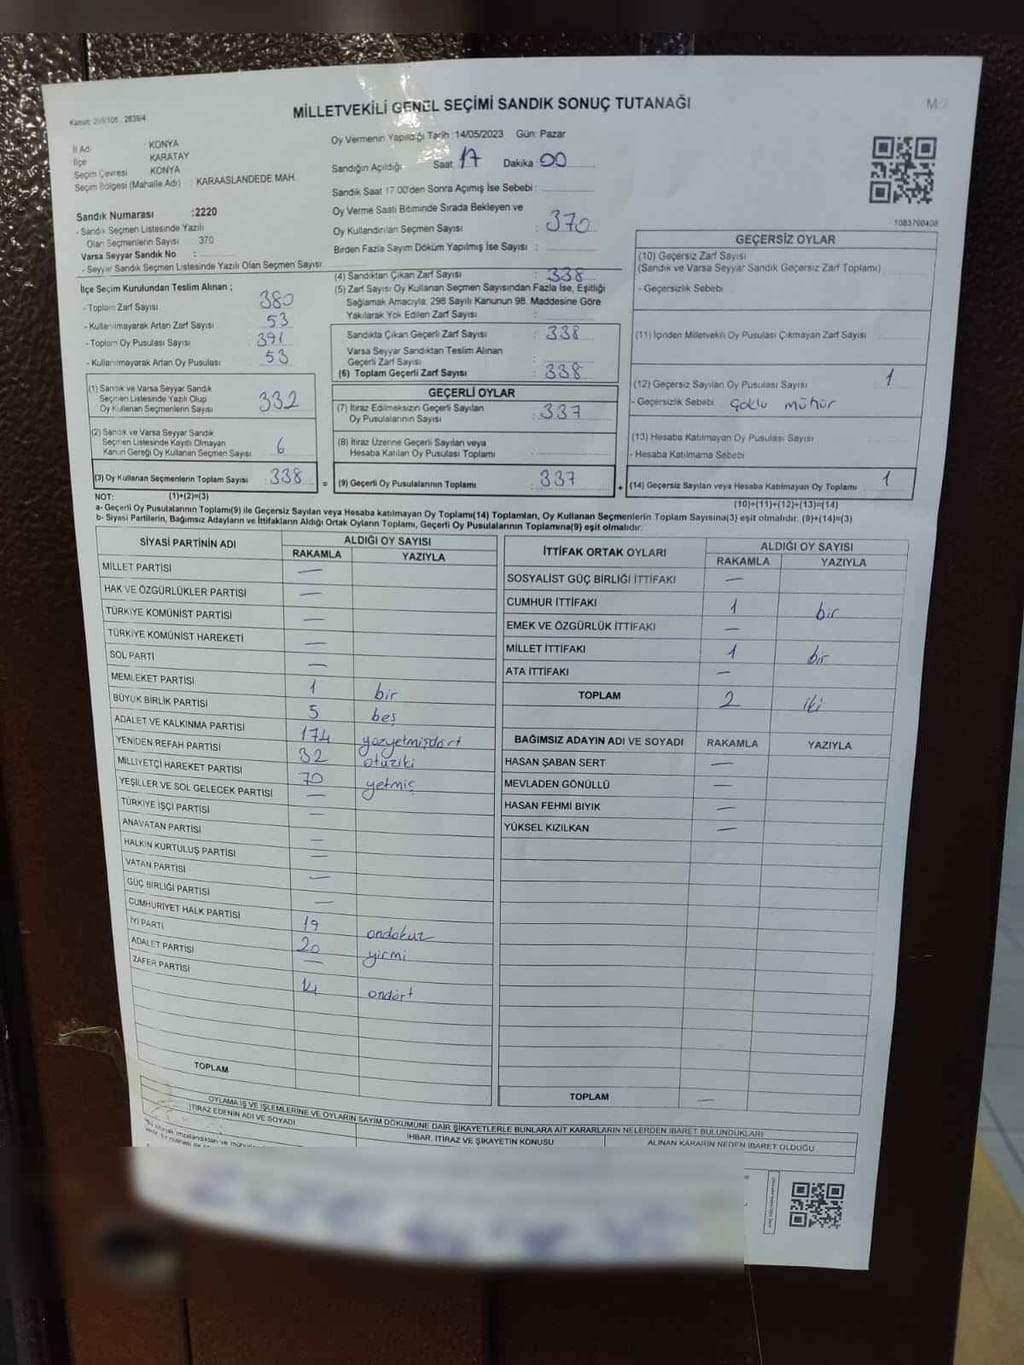 MİLLETVEKİLİ GENEL SEÇİMİ SANDIK SONUÇ TUTANAĞI
İl Adı : KONYA
İlçe : KARATAY
Seçim Çevresi : KONYA
Seçim Bölgesi (Mahalle Adı) : KARAASLANDEDE MAH.
Sandık Numarası :2220
- Sandık Seçmen Listesinde Yazılı
Olan Seçmenlerin Sayısı : 370
Varsa Seyyar Sandık No :
- Seyyar Sandık Seçmen Listesinde Yazılı Olan Seçmen Sayısı:
Oy Vermenin Yapıldığı Tarih :14/05/2023 Gün: Pazar
Sandığın Açıldığı : Saat 17 Dakika 00
Sandık Saat 17:00'den Sonra Açımış İse Sebebi :
Oy Verme Saati Bitiminde Sırada Bekleyen ve
Oy Kullandırılan Seçmen Sayısı : 370
Birden Fazla Sayım Döküm Yapılmış İse Sayısı :
1083700408
İlçe Seçim Kurulundan Teslim Alınan ;
- Toplam Zarf Sayısı : 380
- Kullanılmayarak Artan Zarf Sayısı : 53
- Toplam Oy Pusulası Sayısı : 391
- Kullanılmayarak Artan Oy Pusulası : 53
(1) Sandık ve Varsa Seyyar Sandık
Seçmen Listesinde Yazılı Olup
Oy Kullanan Seçmenlerin Sayısı : 332
(2) Sandık ve Varsa Seyyar Sandık
Seçmen Listesinde Kayıtlı Olmayan
Kanun Gereği Oy Kullanan Seçmen Sayısı : 6
(3) Oy Kullanan Seçmenlerin Toplam Sayısı : 338
(4) Sandıktan Çıkan Zarf Sayısı : 338
(5) Zarf Sayısı Oy Kullanan Seçmen Sayısından Fazla İse, Eşitliği
Sağlamak Amacıyla, 298 Sayılı Kanunun 98. Maddesine Göre
Yakılarak Yok Edilen Zarf Sayısı :
Sandıkta Çıkan Geçerli Zarf Sayısı : 338
Varsa Seyyar Sandıktan Teslim Alınan
Geçerli Zarf Sayısı :
(6) Toplam Geçerli Zarf Sayısı : 338
GEÇERLİ OYLAR
(7) İtiraz Edilmeksizin Geçerli Sayılan
Oy Pusulalarının Sayısı : 337
(8) İtiraz Üzerine Geçerli Sayılan veya
Hesaba Katılan Oy Pusulası Toplamı :
= (9) Geçerli Oy Pusulalarının Toplamı : 337
GEÇERSİZ OYLAR
(10) Geçersiz Zarf Sayısı
(Sandık ve Varsa Seyyar Sandık Geçersiz Zarf Toplamı) :
- Geçersizlik Sebebi :
(11) İçinden Milletvekili Oy Pusulası Çıkmayan Zarf Sayısı :
(12) Geçersiz Sayılan Oy Pusulası Sayısı : 1
- Geçersizlik Sebebi : Çoklu mühür
(13) Hesaba Katılmayan Oy Pusulası Sayısı :
- Hesaba Katılmama Sebebi :
+ (14) Geçersiz Sayılan veya Hesaba Katılmayan Oy Toplamı : 1
NOT: (1)+(2)=(3)
(10)+(11)+(12)+(13)=(14)
a- Geçerli Oy Pusulalarının Toplamı(9) ile Geçersiz Sayılan veya Hesaba Katılmayan Oy Toplamı(14) Toplamları, Oy Kullanan Seçmenlerin Toplam Sayısına(3) eşit olmalıdır. (9)+(14)=(3)
b- Siyasi Partilerin, Bağımsız Adayların ve İttifakların Aldığı Ortak Oyların Toplamı, Geçerli Oy Pusulalarının Toplamına(9) eşit olmalıdır.
SİYASİ PARTİNİN ADI ALDIĞI OY SAYISI
RAKAMLA YAZIYLA
MİLLET PARTİSI —
HAK VE ÖZGÜRLÜKLER PARTİSİ —
TÜRKİYE KOMÜNİST PARTİSİ —
TÜRKİYE KOMÜNİST HAREKETİ —
SOL PARTİ —
MEMLEKET PARTİSİ 1 bir
BÜYÜK BİRLİK PARTİSİ 5 beş
ADALET VE KALKINMA PARTİSİ 174 yüzyetmişdört
YENİDEN REFAH PARTİSİ 32 otuziki
MİLLİYETÇİ HAREKET PARTİSİ 70 yetmiş
YEŞİLLER VE SOL GELECEK PARTİSİ —
TÜRKİYE İŞÇİ PARTİSİ —
ANAVATAN PARTİSİ —
HALKIN KURTULUŞ PARTİSİ —
VATAN PARTİSİ —
GÜÇ BİRLİĞİ PARTİSİ —
CUMHURİYET HALK PARTİSİ 19 ondokuz
İYİ PARTİ 20 yirmi
ADALET PARTİSİ —
ZAFER PARTİSİ 14 ondört
TOPLAM
İTTİFAK ORTAK OYLARI ALDIĞI OY SAYISI
RAKAMLA YAZIYLA
SOSYALİST GÜÇ BİRLİĞİ İTTİFAKI —
CUMHUR İTTİFAKI 1 bir
EMEK VE ÖZGÜRLÜK İTTİFAKI —
MİLLET İTTİFAKI 1 bir
ATA İTTİFAKI —
TOPLAM 2 iki
BAĞIMSIZ ADAYIN ADI VE SOYADI RAKAMLA YAZIYLA
HASAN ŞABAN SERT —
MEVLADEN GÖNÜLLÜ —
HASAN FEHMİ BIYIK —
YÜKSEL KIZILKAN —
TOPLAM —
OYLAMA İŞ VE İŞLEMLERİNE VE OYLARIN SAYIM DÖKÜMÜNE DAİR ŞİKAYETLERLE BUNLARA AİT KARARLARIN NELERDEN İBARET BULUNDUKLARI
İTİRAZ EDENİN ADI VE SOYADI İHBAR, İTİRAZ VE ŞİKAYETİN KONUSU ALINAN KARARIN NEDEN İBARET OLDUĞU